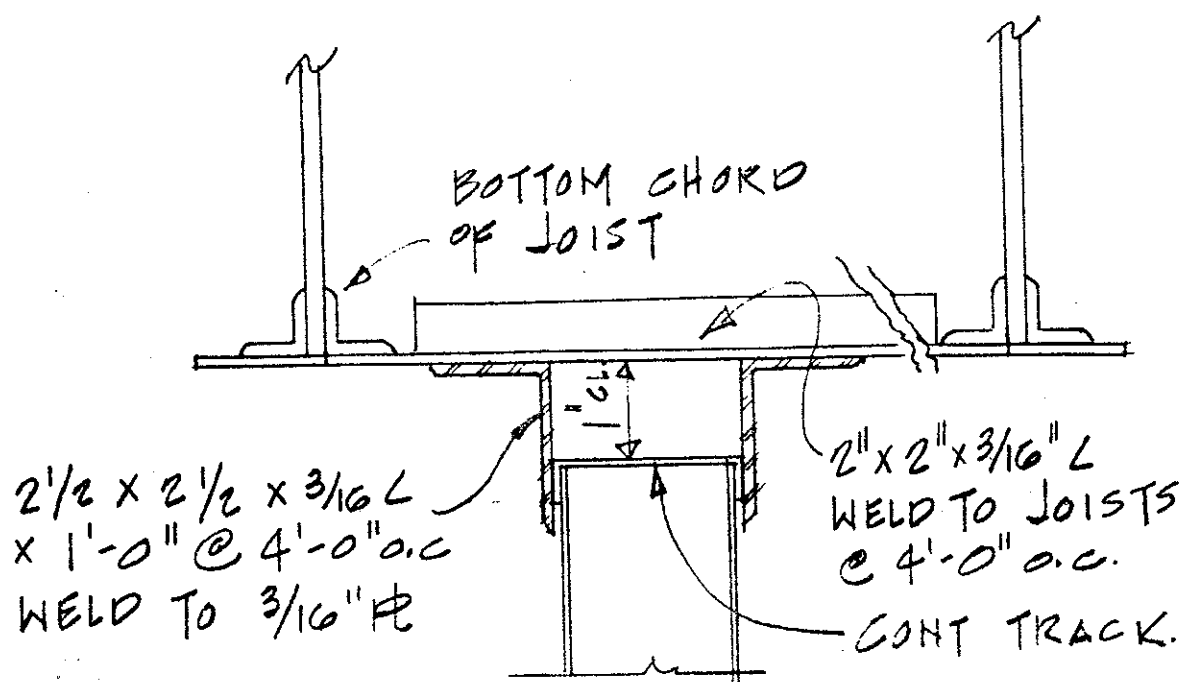 BOTTOM CHORD
OF JOIST
1 1/2"
2 1/2 x 2 1/2 x 3/16 L
x 1'-0" @ 4'-0" o.c
WELD TO 3/16" PL
2" x 2" x 3/16" L
WELD TO JOISTS
@ 4'-0" o.c.
CONT TRACK.